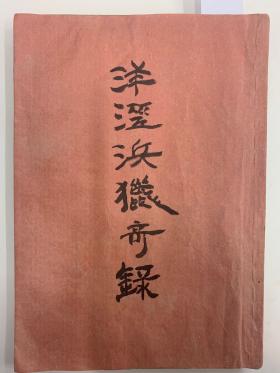 洋涇浜獵奇錄